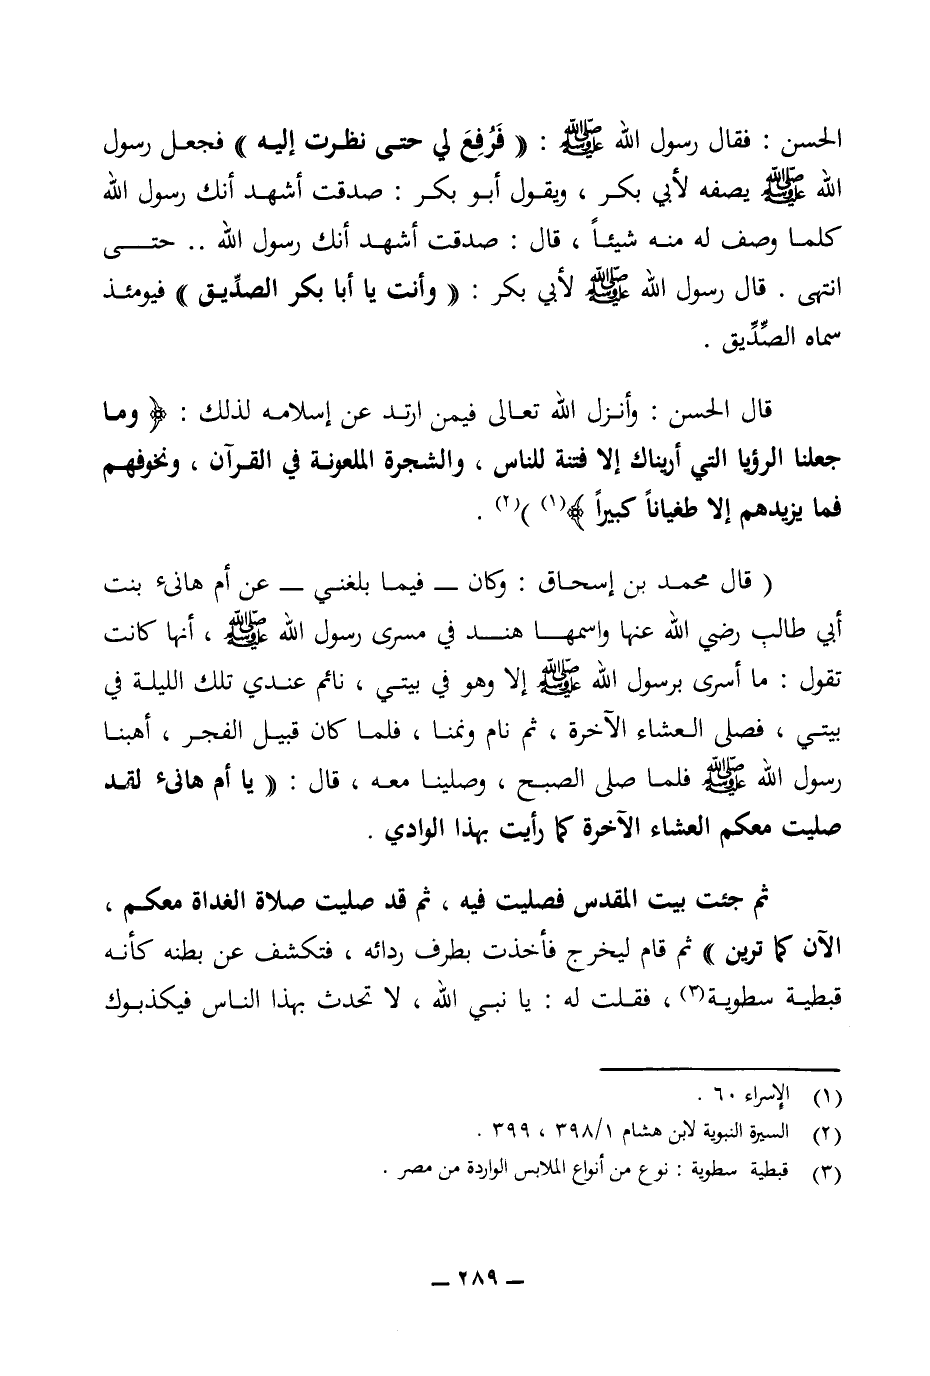 الحسن : فقال رسول الله ﷺ : « فَرُفِعَ لي حتى نظرت إليه » فجعل رسول
الله ﷺ يصفه لأبي بكر ، ويقول أبو بكر : صدقت أشهد أنك رسول الله
كلما وصف له منه شيئاً ، قال : صدقت أشهد أنك رسول الله .. حتى
انتهى . قال رسول الله ﷺ لأبي بكر : « وأنت يا أبا بكر الصدِّيق » فيومئذ
سماه الصِّدِّيق .
قال الحسن : وأنزل الله تعالى فيمن ارتد عن إسلامه لذلك : ﴿ وما
جعلنا الرؤيا التي أريناك إلا فتنة للناس ، والشجرة الملعونة في القرآن ، ونخوفهم
فما يزيدهم إلا طغياناً كبيراً ﴾(١) )(٢) .
( قال محمد بن إسحاق : وكان ــ فيما بلغني ــ عن أم هانىء بنت
أبي طالب رضي الله عنها واسمها هند في مسرى رسول الله ﷺ ، أنها كانت
تقول : ما أسرى برسول الله ﷺ إلا وهو في بيتي ، نائم عندي تلك الليلة في
بيتي ، فصلى العشاء الآخرة ، ثم نام ونمنا ، فلما كان قبيل الفجر ، أهبنا
رسول الله ﷺ فلما صلى الصبح ، وصلينا معه ، قال : « يا أم هانىء لقد
صليت معكم العشاء الآخرة كما رأيت بهذا الوادي .
ثم جئت بيت المقدس فصليت فيه ، ثم قد صليت صلاة الغداة معكم ،
الآن كما ترين » ثم قام ليخرج فأخذت بطرف ردائه ، فتكشف عن بطنه كأنه
قبطية سطوية(٣) ، فقلت له : يا نبي الله ، لا تحدث بهذا الناس فيكذبوك
(١) الإسراء ٦٠ .
(٢) السيرة النبوية لابن هشام ٣٩٨/١ ، ٣٩٩ .
(٣) قبطية سطوية : نوع من أنواع الملابس الواردة من مصر .
ــ ٢٨٩ ــ